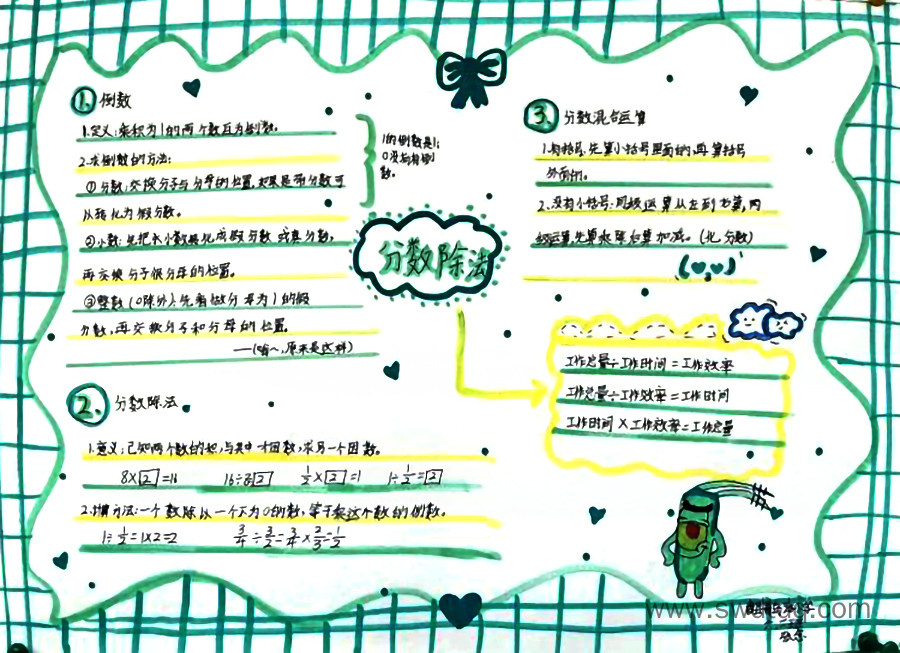 1. 倒数
1.定义:乘积为1的两个数互为倒数。
2.求倒数的方法:
①分数:交换分子与分母的位置,如果是带分数可
以转化为假分数。
②小数:先把小数化成假分数或真分数,
再交换分子很分母的位置。
③整数(0除外):先看做分母为1的假
分数,再交换分子和分母的位置。
——(嗬~,原来是这样)
1的倒数是1;
0没有倒
数。
分数除法
2. 分数除法
1.意义:已知两个数的积,与其中一个因数,求另一个因数。
8×2=16 16÷8 2 1/2×2=1 1÷1/2=2
2.计算方法:一个数除以一个不为0的数,等于乘这个数的倒数。
1÷1/2=1×2=2 3/4÷3/2=3/4×2/3=1/2
3. 分数混合运算
1.有括号,先算小括号里面的,再算括号
外面的。
2.没有小括号:同级运算从左到右算,两
级运算,先算乘除后算加减。(化分数)
工作总量÷工作时间=工作效率
工作总量÷工作效率=工作时间
工作时间×工作效率=工作总量